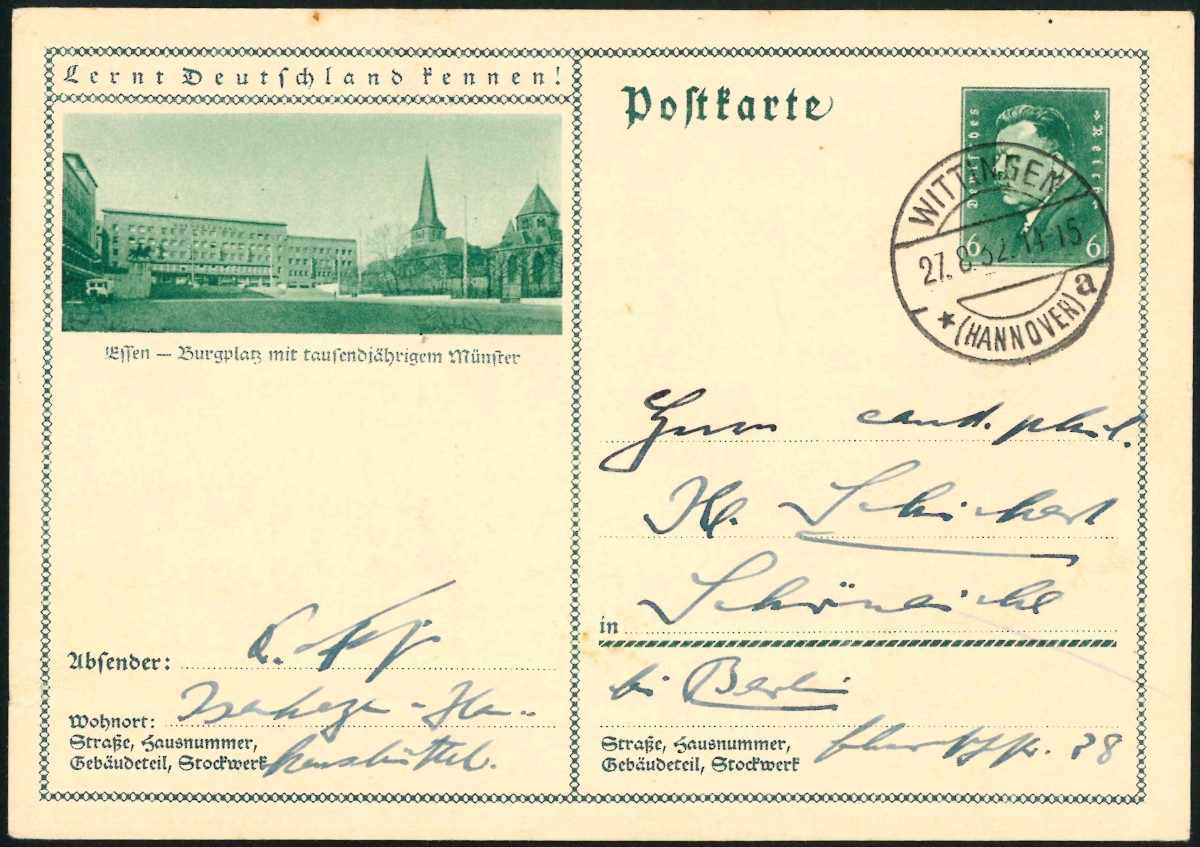 Lernt Deutschland kennen!
Essen — Burgplatz mit tausendjährigem Münster
Postkarte
Deutsches Reich
6 6
WITTINGEN
27.8.32.14-15
* (HANNOVER) a
Herrn cand. phil.
H. Schichert
in Schöneiche
bei Berlin
Straße, Hausnummer,
Gebäudeteil, Stockwerk
28
Absender:
Wohnort:
Straße, Hausnummer,
Gebäudeteil, Stockwerk